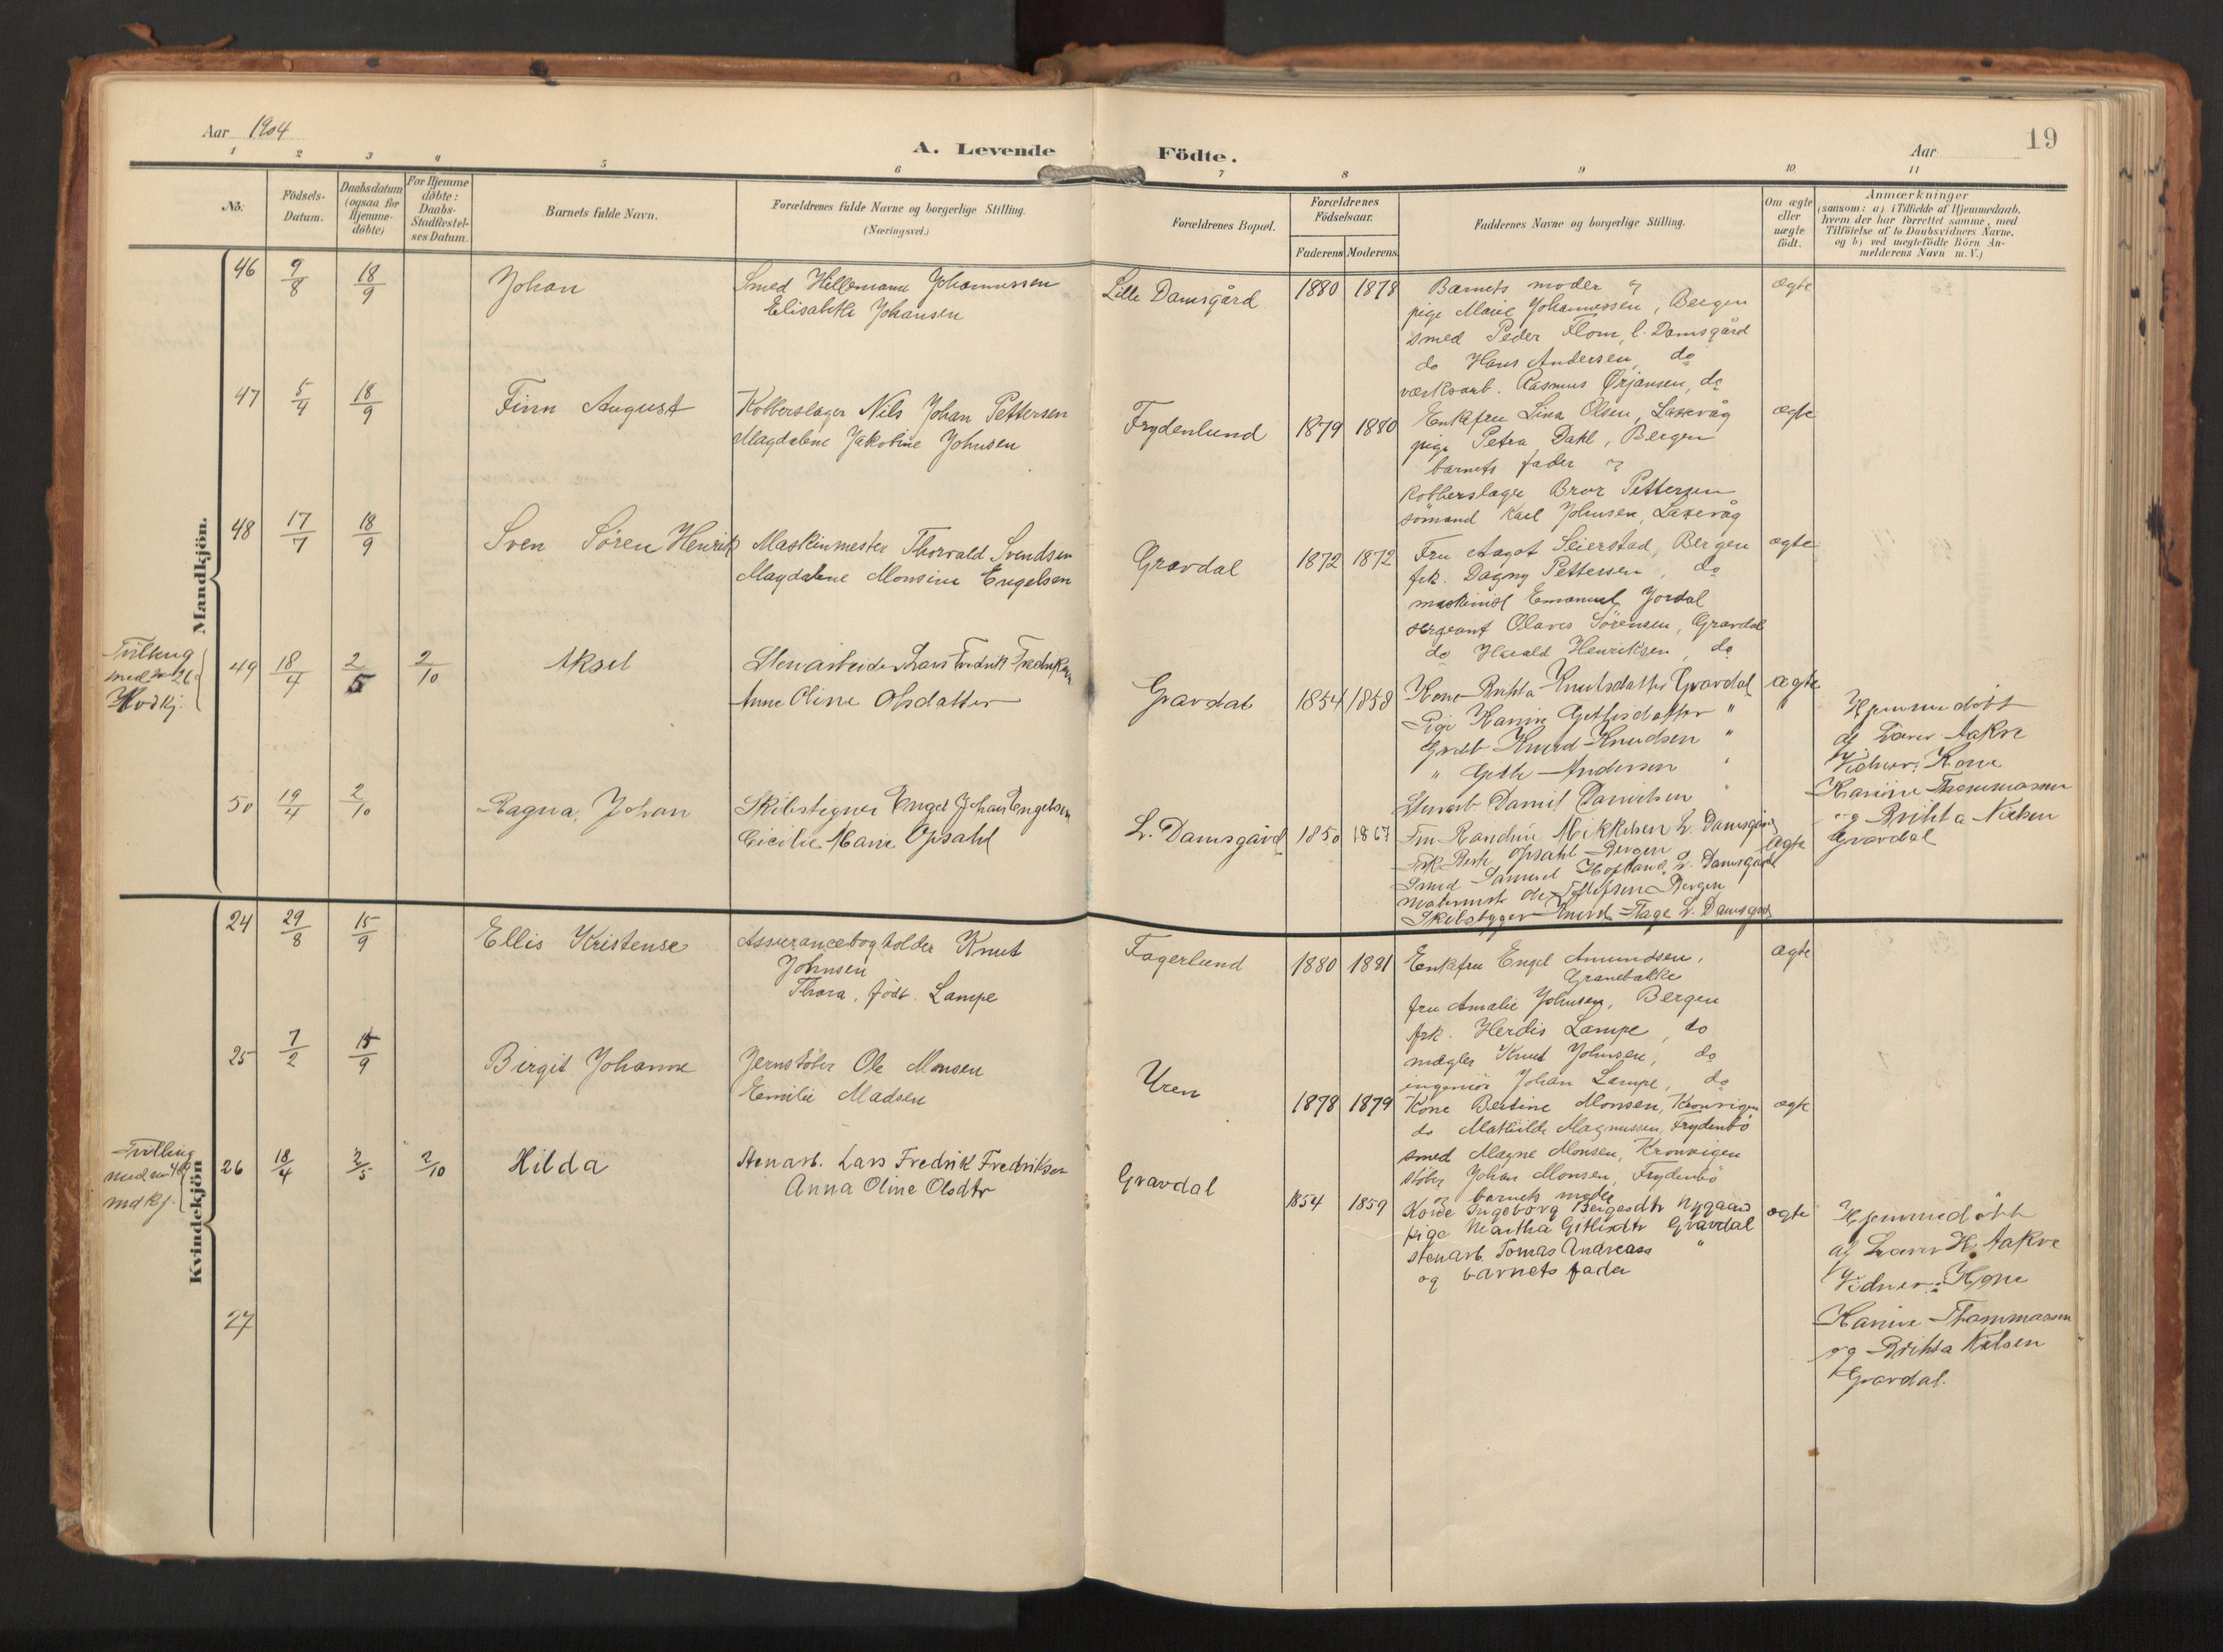 Aar 1904
A. Levende Födte.
Aar
19
1 2 3 4 5 6 7 8 9 10 11
No:
Födsels-Datum.
Daabsdatum (ogsaa for Hjemme-döbte)
For Hjemme döbte: Daabs-Stadfæstel-ses Datum.
Barnets fulde Navn.
Forældrenes fulde Navne og borgerlige Stilling.
(Næringsvei.)
Forældrenes Bopæl.
Forældrenes Födselsaar.
Faderens Moderens
Faddernes Navne og borgerlige Stilling.
Om ægte eller uægte födt.
Anmærkninger
(saasom: a) i Tilfælde af Hjemmedaab,
hvem der har forrettet samme, med
Tilföielse af to Daabsvidners Navne,
og b) ved uegtefödte Börn An-
melderens Navn m. V.)
Mandkjön.
46 9/8 18/9 Johan
Smed Hellemann Johannessen
Elisabeth Johansen
Lille Damsgård 1880 1878
Barnets moder
pige Marie Johannessen, Bergen
smed Peder Flom, l. Damsgård
do Hans Andersen, do
værksarb. Rasmus Ørjansen, do
ægte
47 5/4 18/9 Finn August
Kobberslager Nils Johan Pettersen
Magdalene Jakobine Johnsen
Frydenlund 1879 1880
Enkefru Lina Olsen, Laxevåg
pige Petra Dahl, Bergen
barnets fader
kobberslager Bror Pettersen
sömand Karl Johnsen, Laxevåg
ægte
48 17/7 18/9 Sven Sören Henrik
Maskinmester Thorvald Svendsen
Magdalene Monsine Engelsen
Gravdal 1872 1872
Fru Aagot Seierstad, Bergen
frk. Dagny Pettersen, do
maskinist Emanuel Jordal
sergeant Olaves Sörensen, Gravdal
do Harald Henriksen, do
ægte
Tvilling
med no 26
Kvdkj.
49 18/4 2/5 2/10 Aksel
Stenarbeider Lars Fredrik Fredriksen
Anne Oline Olsdatter
Gravdal 1854 1858
Kone Brihta Knutsdatter Gravdal
Pige Hanine Gethesdatter "
Knud Knudsen "
" Geth Andersen "
Stenarb Daniel Danielsen "
ægte
Hjemmedöbt
af Lærer Aakre
Vidner: Kone
Hanine Thommassen
og Brihta Nielsen
Gravdal
50 19/4 2/10 Ragna, Johan
Skibstegner Engel Johan Engelsen
Cicilie Marie Opsahl
L. Damsgård 1850 1867
Fru Randine Mikkelsen L. Damsgård
Frk Opsahl Bergen
Smed Samuel Hofland, L. Damsgård
Bergen
Skibsbygger Knud Tage L. Damsgård
ægte
Kvindekjön
24 29/8 15/9 Ellis Kristense
Assurancebogholder Knut
Johnsen
Thora, född. Lampe
Fagerlund 1880 1881
Enkefru Engel Amundsen,
Granebakke
fru Amalie Johnsen, Bergen
frk. Herdis Lampe, do
mægler Knut Johnsen, do
ingeniör Johan Lampe, do
ægte
25 7/2 15/9 Birgit Johanne
Jernstöber Ole Monsen
Emilie Madsen
Uren 1878 1879
Kone Bertine Monsen, Kronvigen
do Mathilde Magnussen, Frydenbö
smed Magne Monsen, Kronvigen
stöber Johan Monsen, Frydenbö
og barnets moder
ægte
Tvilling
med no 49
mdkj.
26 18/4 2/5 2/10 Hilda
Stenarb. Lars Fredrik Fredriksen
Anna Oline Olsdtr
Gravdal 1854 1859
Kone Ingeborg Bergesdtr Nygaard
pige Martha Githesdtr Gravdal
stenarb. Tomas Andreass "
og barnets fader
ægte
Hjemmedöbt
af Lærer H. Aakre
Vidner: Kone
Hanine Thommassen
og Brihta Nielsen
Gravdal.
27